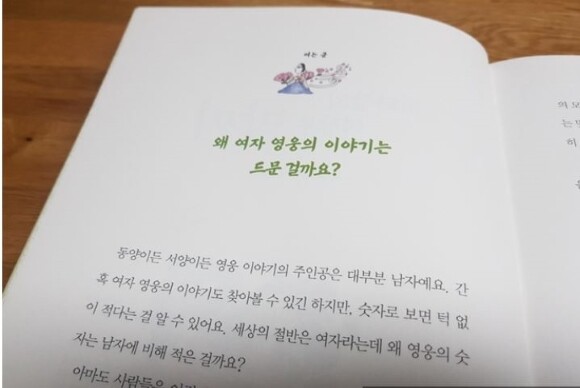 여는 글
왜 여자 영웅의 이야기는
드문 걸까요?
동양이든 서양이든 영웅 이야기의 주인공은 대부분 남자예요. 간
혹 여자 영웅의 이야기도 찾아볼 수 있긴 하지만, 숫자로 보면 턱 없
이 적다는 걸 알 수 있어요. 세상의 절반은 여자라는데 왜 영웅의 숫
자는 남자에 비해 적은 걸까요?
아마도 사람들은
의 모
는 맞
히